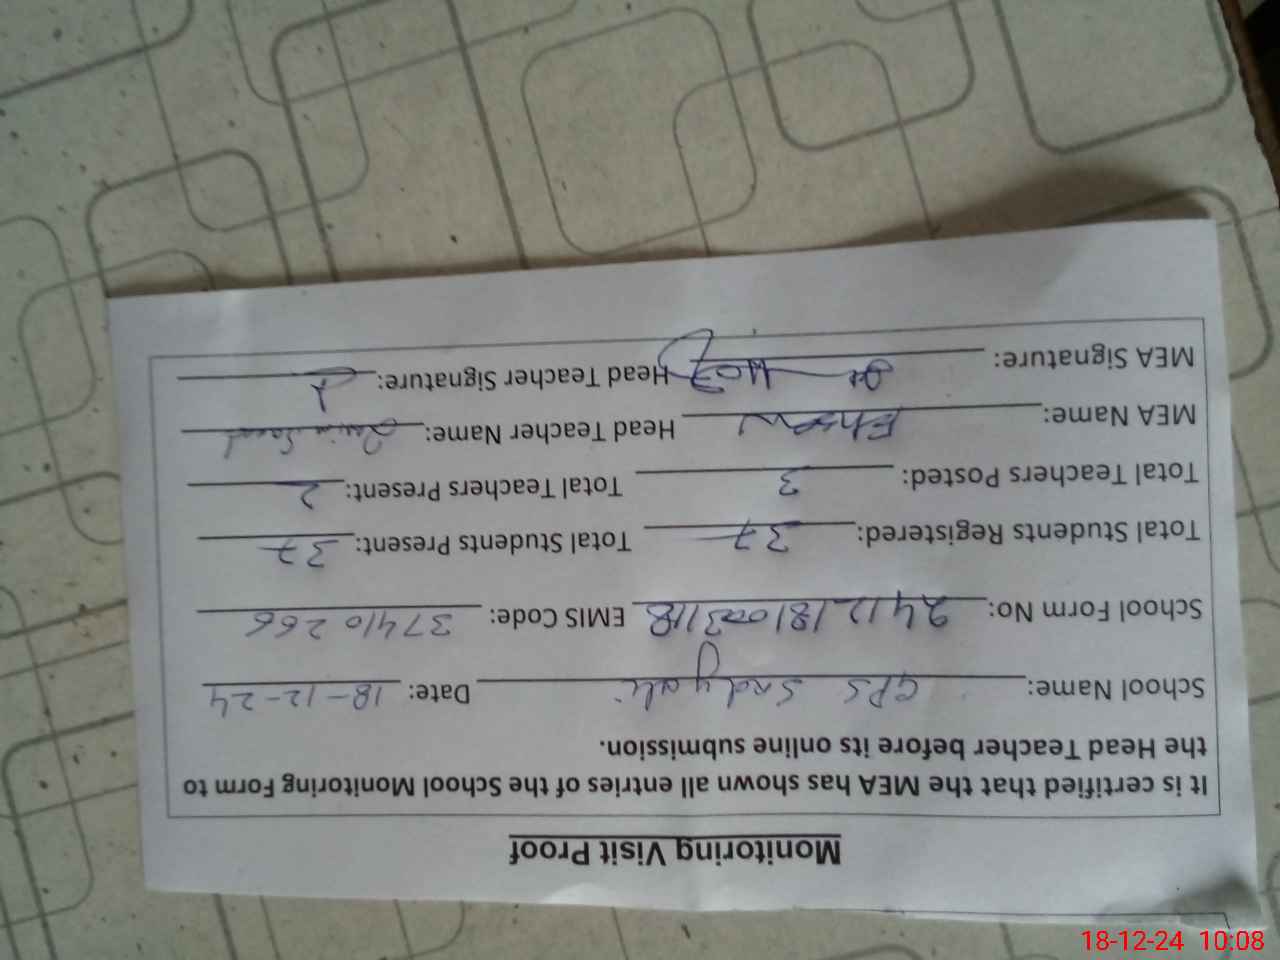 Monitoring Visit Proof
It is certified that the MEA has shown all entries of the School Monitoring Form to
the Head Teacher before its online submission.
School Name: GPS Sadyali Date: 18-12-24
School Form No: EMIS Code: 37410266
Total Students Registered: 37 Total Students Present: 37
Total Teachers Posted: 3 Total Teachers Present: 2
MEA Name: Ehsan Head Teacher Name:
MEA Signature: Head Teacher Signature:
18-12-24 10:08